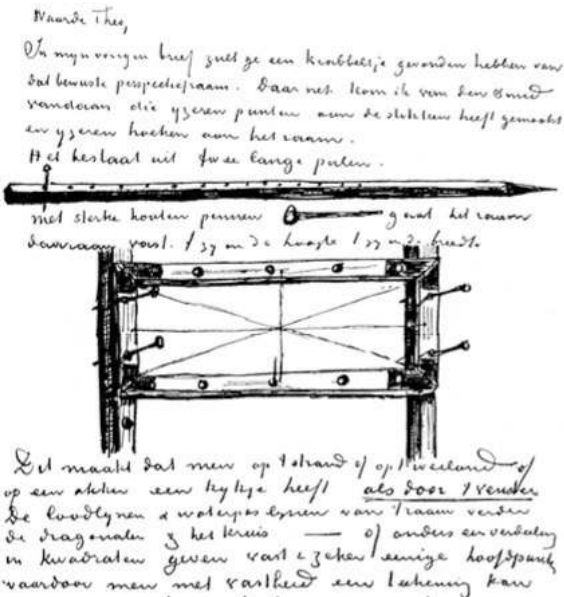 Waarde Theo,
In mijn vorigen brief zult ge een krabbeltje gevonden hebben van
dat bewuste perspectiefraam. Daar net kom ik van den smid
vandaan die yzeren punten aan de stokken heeft gemaakt
en yzeren hoeken aan het raam.
Het bestaat uit twee lange palen.
met sterke houten pennen gaat het raam
daaraan vast. 't zy in de hoogte 't zy in de breedte.
Dit maakt dat men op 't strand of op 't weiland of
op een akker een kykje heeft als door 't venster
De loodlynen & waterpas lynen van 't raam verder
de diagonalen & het kruis — of anders een verdeling
in kwadraten geven vast & zeker eenige hoofdpunten
waardoor men met vastheid een teekening kan